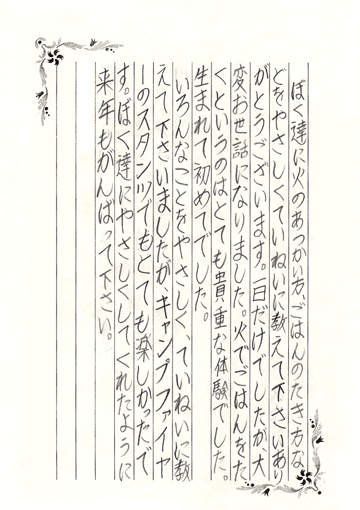 ぼく達に火のあつかい方、ごはんのたき方な
どをやさしくていねいに教えて下さいあり
がとうございます。一日だけでしたが大
変お世話になりました。火でごはんをた
くというのはとても貴重な体験でした。
生まれて初めてでした。
いろんなことをやさしく、ていねいに教
えて下さいましたが、キャンプファイヤ
ーのスタンツでもとても楽しかったで
す。ぼく達にやさしくしてくれたように
来年もがんばって下さい。